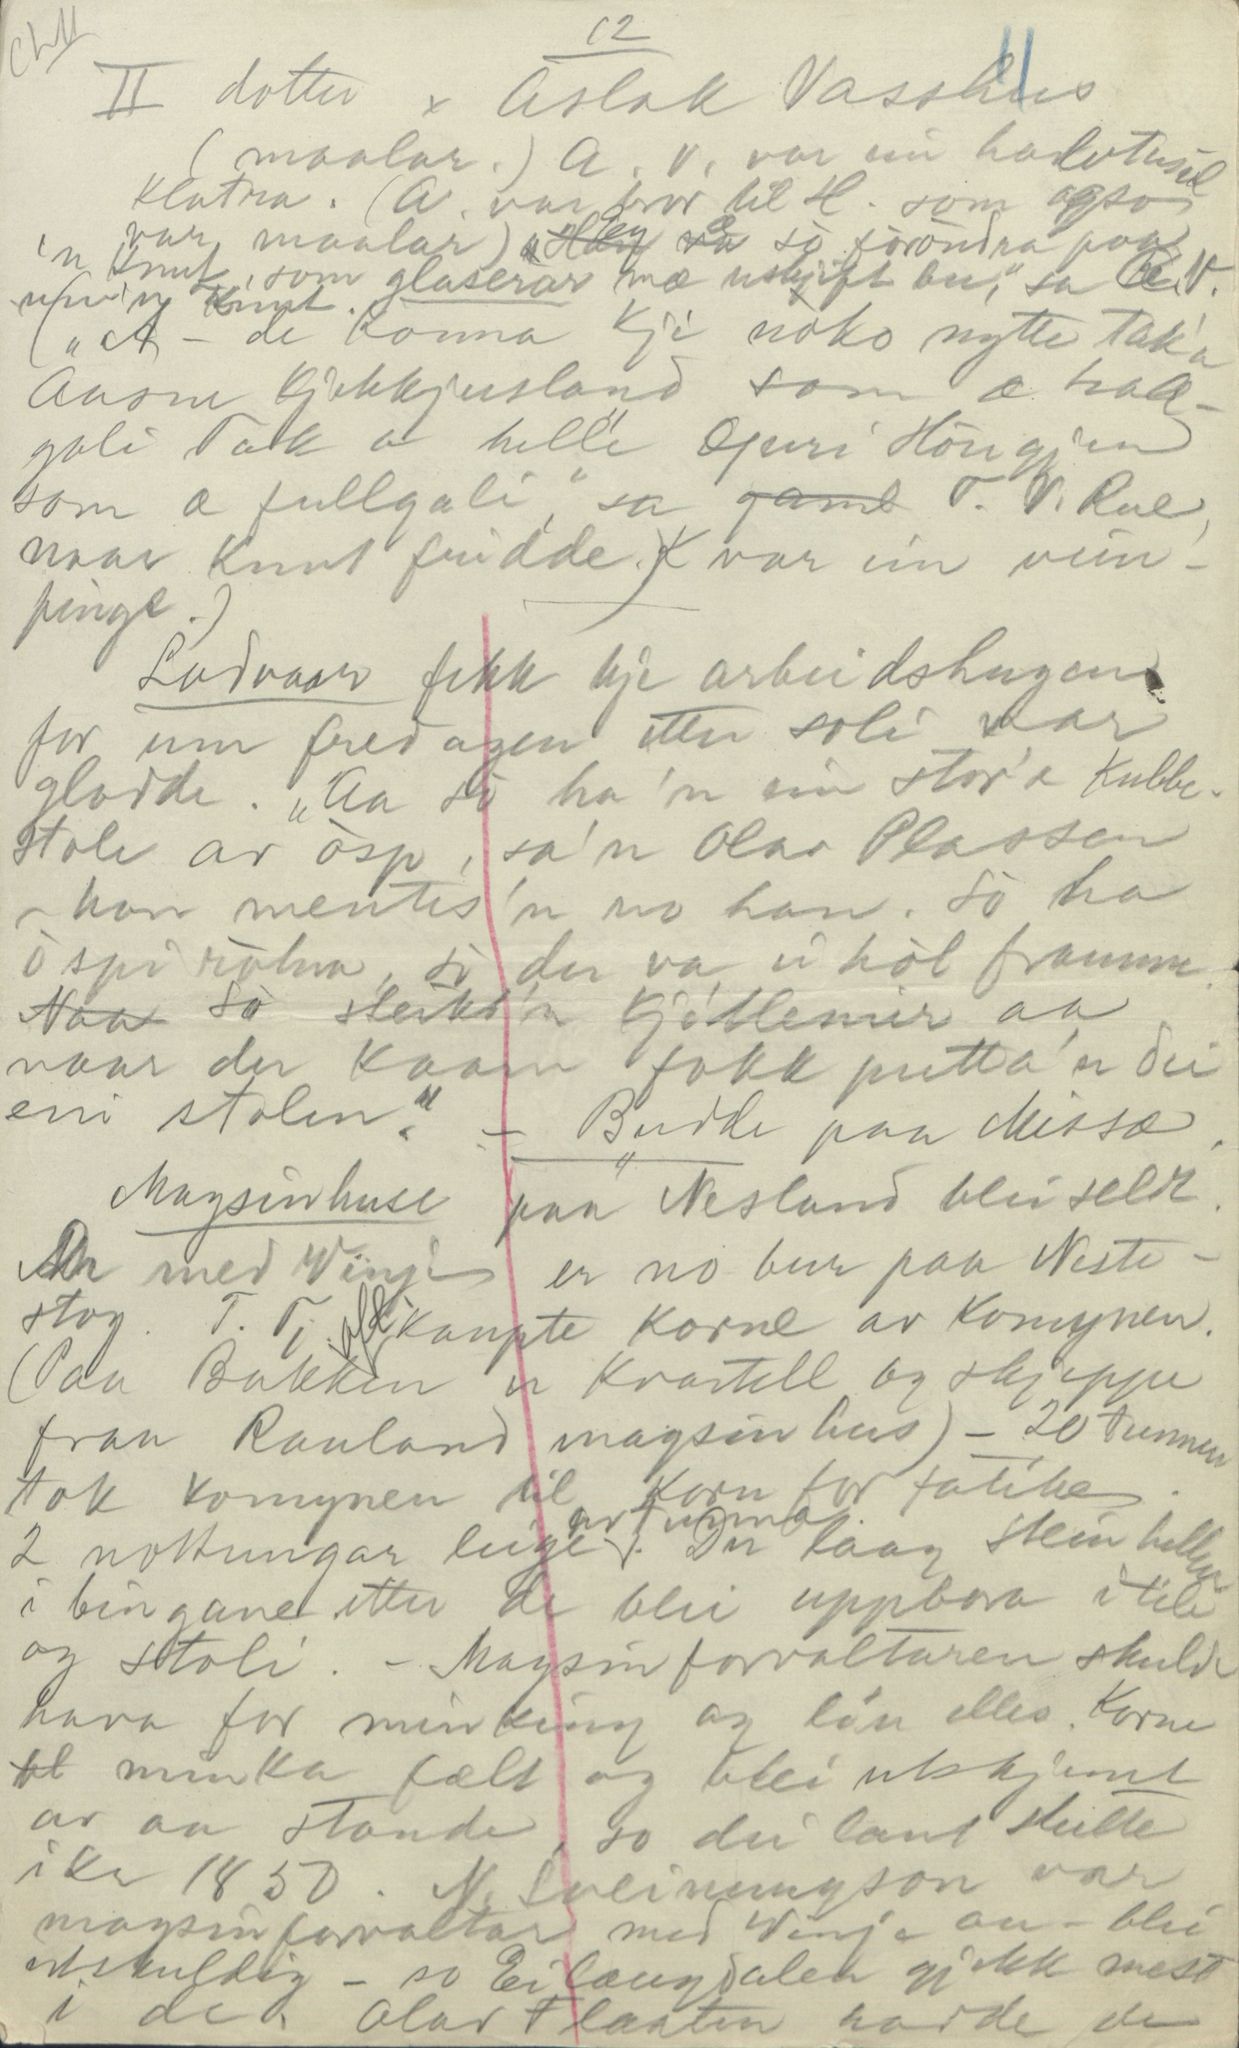 12
II dotter x Aslak Vasshus
(maalar.) A. V. var ein
klatra. (A. var bror til H. som ogso
var maalar) so forundra paa
'n Knut, som glaserar mæ uskift bu," sa A. V.
("A - de konna kje nòko nytte tak'a
Aasne Kjekkjusland som æ hal-
gali Tak a helle Gjuri Höugjen
som æ fullgali," sa gaml T. V. Rue,
naar Knut fridde. K var ein vein-
pinge.)
Lodvaar fekk kje arbeidshugen
for um fredagen etter soli var
gladde. "Aa so ha'n ein stor'e kubbe-
stole av òsp, sa'n Olav Plassen
- han mentes'n no han. Sò ha
òspi ròtna, sò der va ei hòl framme
Naa sò steikt'n kjòtlemer aa
naar der kaam fokk putta'n dei
eni stolen." - Budde paa Missæ.
Magsinhuse paa Nesland blei seldt.
med Vinje er no bur paa Neste-
stog. T. T. kaupte korne av komynen.
(Paa Bakken er kvartell og skjeppe
fraa Rauland magsinhus) - 20 tunner
tok komynen til korn for fatike.
2 nottungar leige av tunna. Der laag steinheller
i bingane etter de blei uppbora i tili
og stoli. - Magsinforvaltaren skulde
hava for minking og lòn elles. Korne
minka fælt og blei utskjemt
av aa stande, so dei laut slutte
ikr 1850. N. Sveinungson var
magsinforvaltar med Vinje au - blei
utskuldig - so Eilæugdalen gjekk mest
i de. Olav Flaaten hadde de